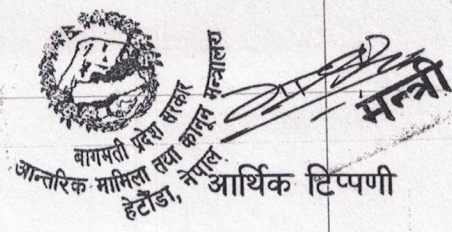 बागमती प्रदेश सरकार
आन्तरिक मामिला तथा कानून मन्त्रालय
हेटौंडा, नेपाल
मन्त्री
आर्थिक टिप्पणी